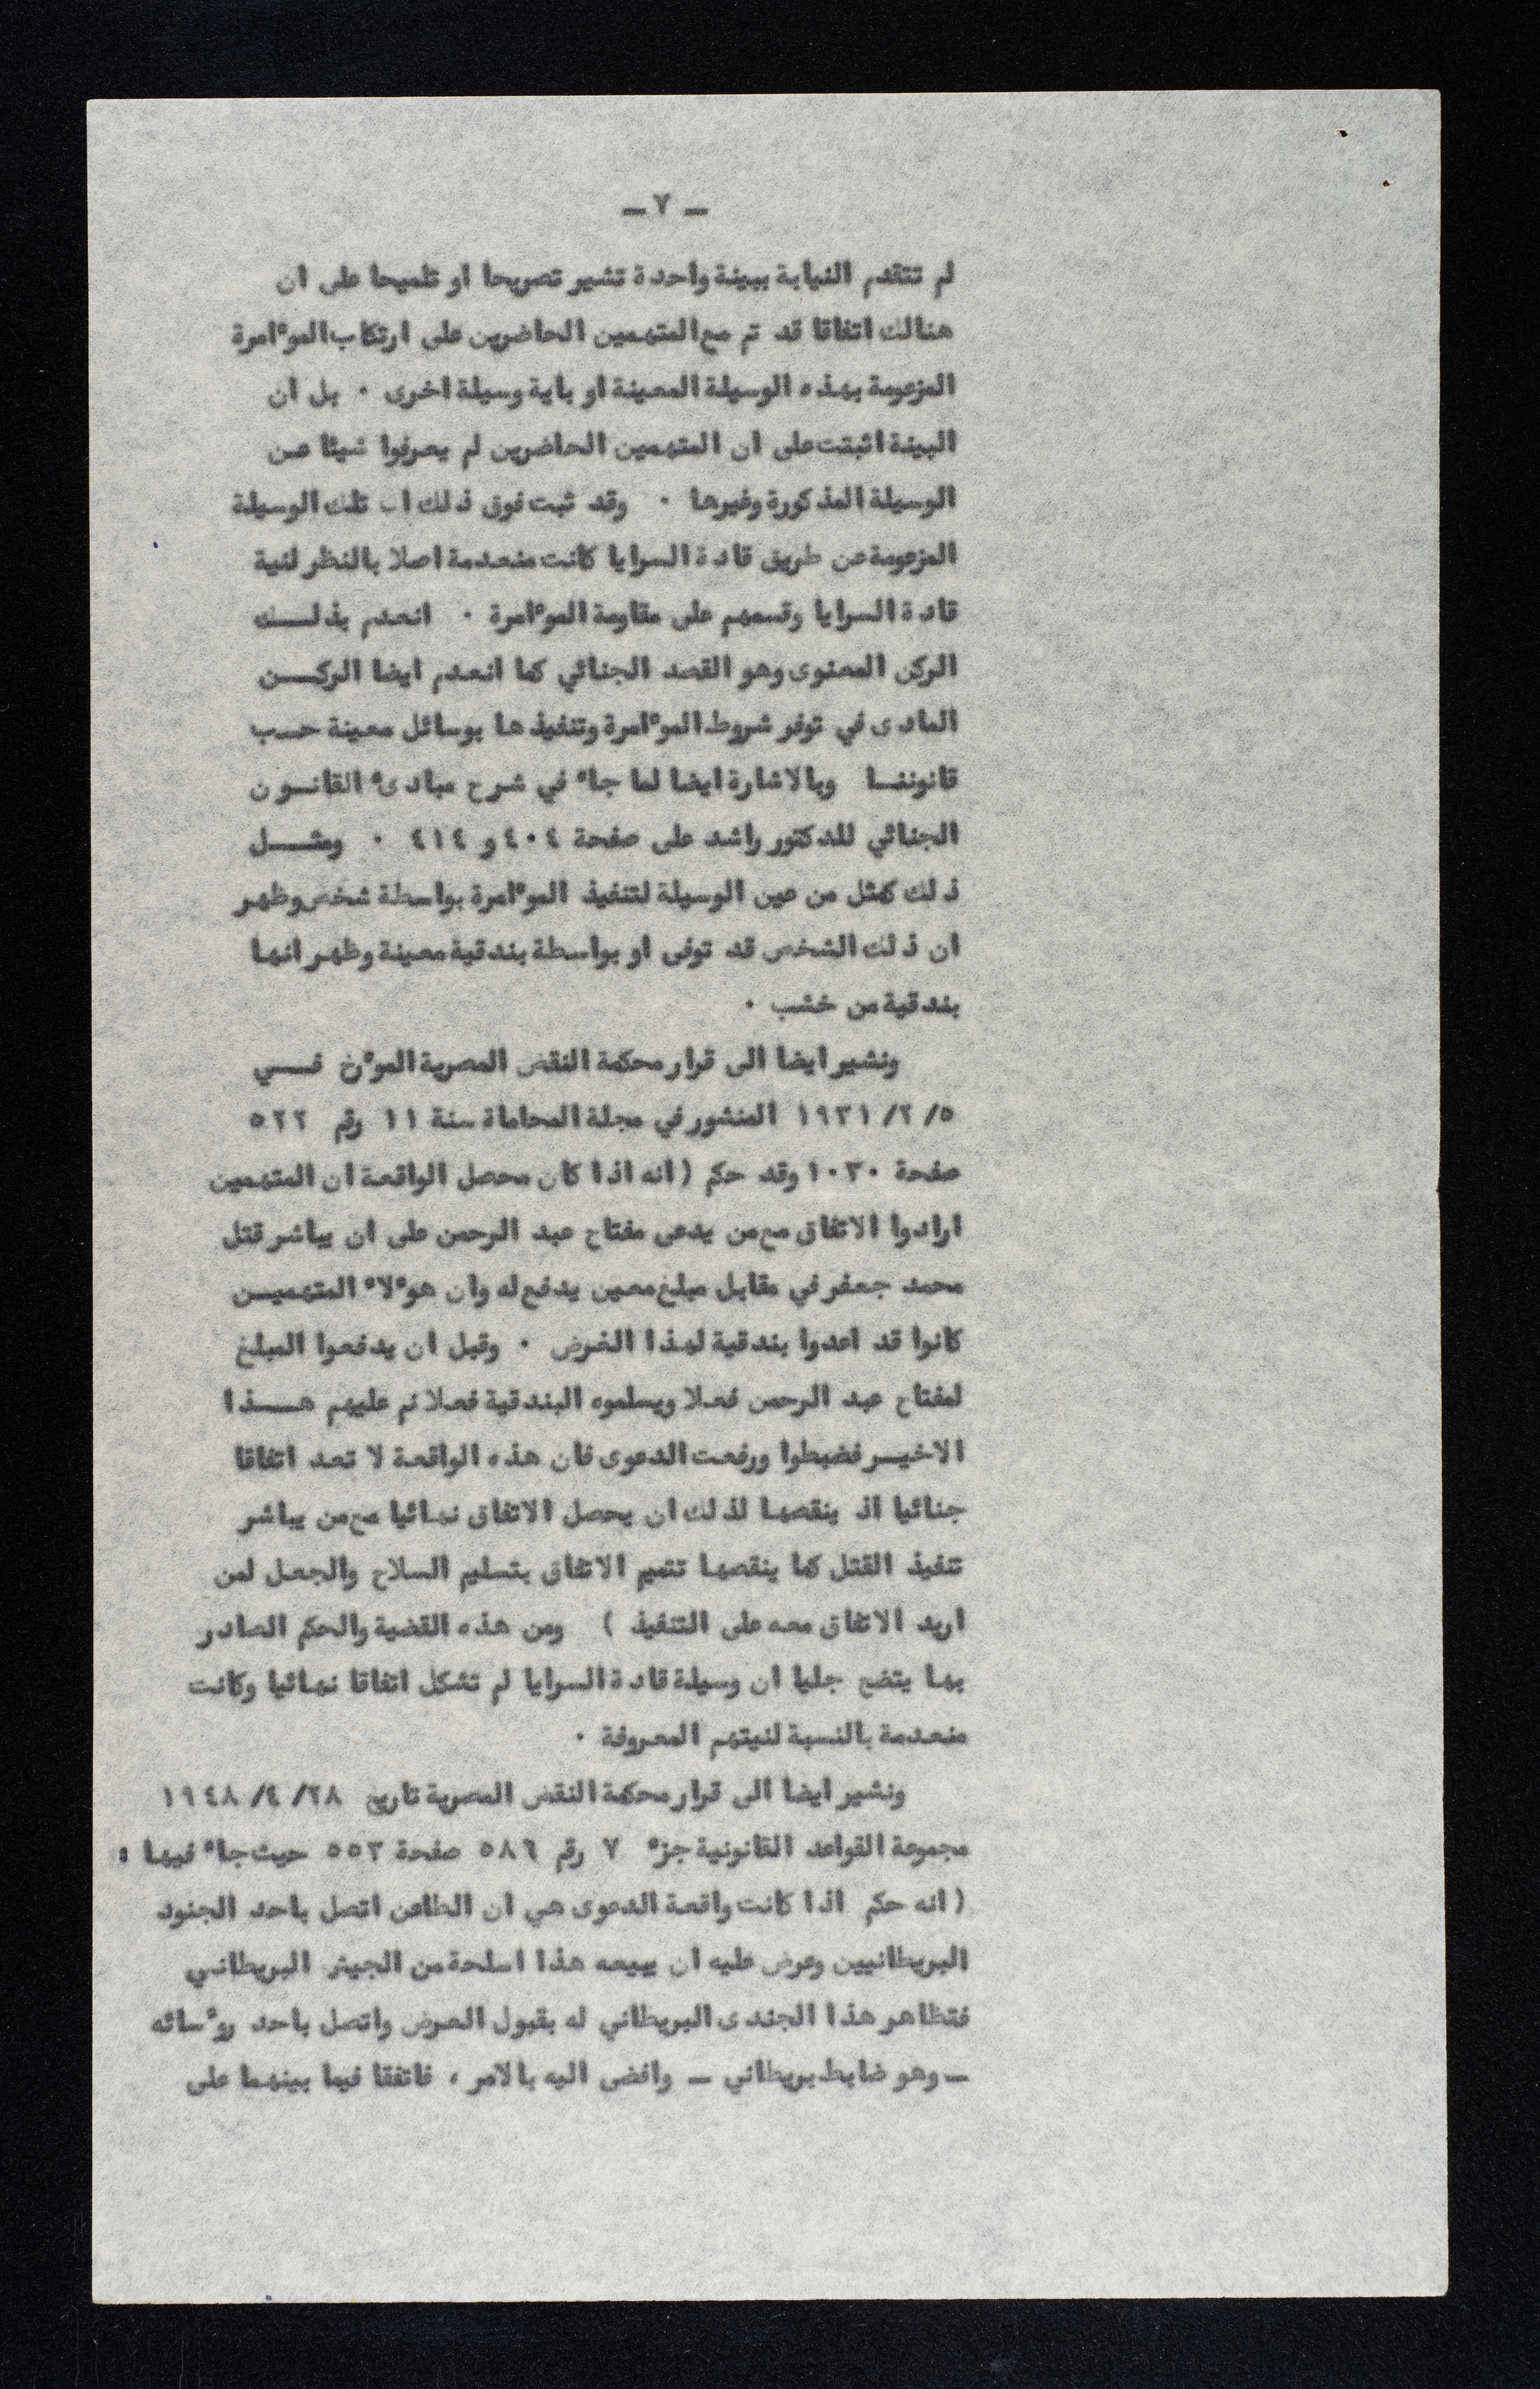 ـ ٧ ـ
لم تتقدم النيابة ببينة واحدة تشير تصريحا او تلميحا على ان
هنالك اتفاقا قد تم مع المتهمين الحاضرين على ارتكاب الموءامرة
المزعومة بهذه الوسيلة المعينة او باية وسيلة اخرى ٠ بل ان
البينة اثبتت على ان المتهمين الحاضرين لم يعرفوا شيئا عن
الوسيلة المذكورة وغيرها ٠ وقد ثبت فوق ذلك ان تلك الوسيلة
المزعومة عن طريق قادة السرايا كانت منعدمة اصلا بالنظر لنية
قادة السرايا وقسمهم على مقاومة الموءامرة ٠ انعدم بذلــــك
الركن المعنوى وهو القصد الجنائي كما انعدم ايضا الركــــن
المادى في توفر شروط الموءامرة وتنفيذها بوسائل معينة حسب
قانوننــا وبالاشارة ايضا لما جاء في شرح مبادىء القانــون
الجنائي للدكتور راشد على صفحة ٤٠٤ و ٤١٤ ٠ ومثــــل
ذلك كمثل من عين الوسيلة لتنفيذ الموءامرة بواسطة شخص وظهر
ان ذلك الشخص قد توفى او بواسطة بندقية معينة وظهر انها
بندقية من خشب ٠
ونشير ايضا الى قرار محكمة النقض المصرية الموءرخ فــــي
٥/ ٢/ ١٩٣١ المنشور في مجلة المحاماة سنة ١١ رقم ٥٢٢
صفحة ١٠٣٠ وقد حكم ( انه اذا كان محصل الواقعة ان المتهمين
ارادوا الاتفاق مع من يدعى مفتاح عبد الرحمن على ان يباشر قتل
محمد جعفر في مقابل مبلغ معين يدفع له وان هوءلاء المتهميــن
كانوا قد اعدوا بندقية لهذا الغرض ٠ وقبل ان يدفعوا المبلغ
لمفتاح عبد الرحمن فعلا ويسلموه البندقية فعلا نم عليهم هــــذا
الاخيــر فضبطوا ورفعت الدعوى فان هذه الواقعة لا تعد اتفاقا
جنائيا اذ ينقصها لذلك ان يحصل الاتفاق نهائيا مع من يباشر
تنفيذ القتل كما ينقصها تتميم الاتفاق بتسليم السلاح والجعل لمن
اريد الاتفاق معه على التنفيذ ) ومن هذه القضية والحكم الصادر
بها يتضح جليا ان وسيلة قادة السرايا لم تشكل اتفاقا نهائيا وكانت
منعدمة بالنسبة لنيتهم المعروفة ٠
ونشير ايضا الى قرار محكمة النقض المصرية تاريخ ٢٨/ ٤/ ١٩٤٨
مجموعة القواعد القانونية جزء ٧ رقم ٥٨٦ صفحة ٥٥٣ حيث جاء فيها :
( انه حكم اذا كانت واقعة الدعوى هي ان الطاعن اتصل باحد الجنود
البريطانيين وعرض عليه ان يبيعه هذا اسلحة من الجيش البريطاني
فتظاهر هذا الجندى البريطاني له بقبول العرض واتصل باحد روءسائه
ـ وهو ضابط بريطاني ـ وافضى اليه بالامر ، فاتفقا فيما بينهما على